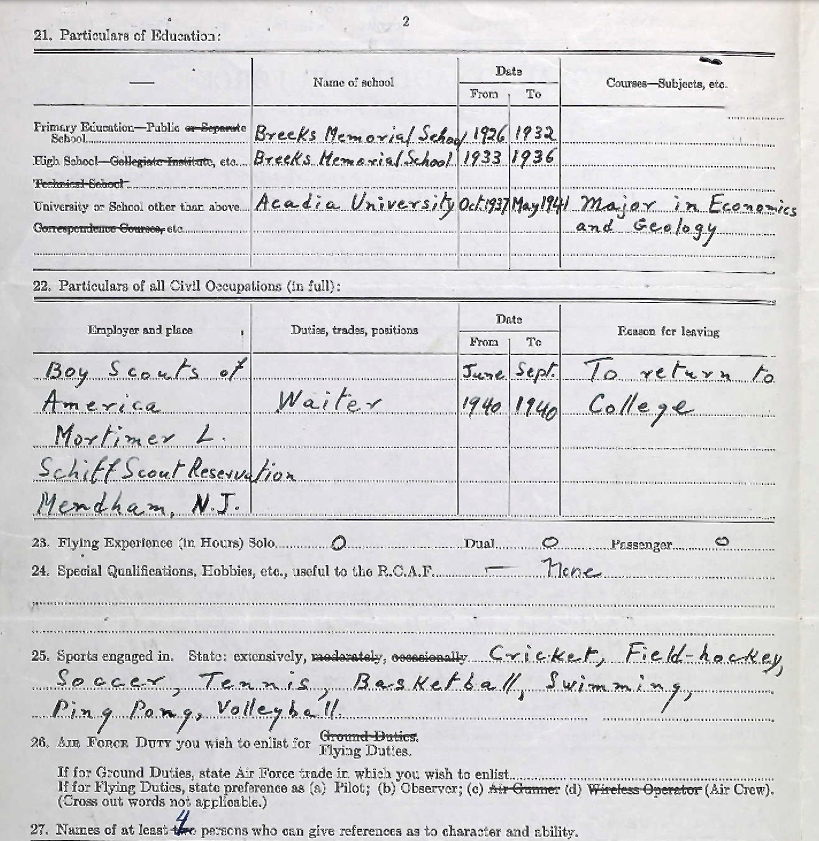 2
21. Particulars of Education:
Name of school
Date
From To
Courses—Subjects, etc.
Primary Education—Public or Separate
School
Breeks Memorial School 1926 1932
High School—Collegiate Institute, etc. Breeks Memorial School 1933 1936
Technical School
University or School other than above Acadia University Oct. 1937 May 1941 Major in Economics
Correspondence Courses, etc. and Geology
22. Particulars of all Civil Occupations (in full):
Employer and place
Duties, trades, positions
Date
From To
Reason for leaving
Boy Scouts of June Sept. To return to
America Waiter 1940 1940 College
Mortimer L.
Schiff Scout Reservation
Mendham, N.J.
23. Flying Experience (in Hours) Solo 0 Dual 0 Passenger 0
24. Special Qualifications, Hobbies, etc., useful to the R.C.A.F. — None
25. Sports engaged in. State: extensively, moderately, occasionally Cricket, Field-hockey,
Soccer, Tennis, Basketball, Swimming,
Ping Pong, Volleyball.
26. AIR FORCE DUTY you wish to enlist for Ground Duties.
Flying Duties.
If for Ground Duties, state Air Force trade in which you wish to enlist
If for Flying Duties, state preference as (a) Pilot; (b) Observer; (c) Air Gunner (d) Wireless Operator (Air Crew).
(Cross out words not applicable.)
27. Names of at least two 4 persons who can give references as to character and ability.